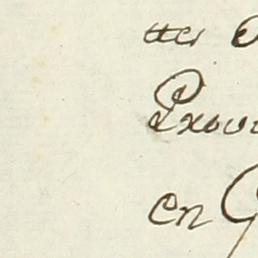 ttes
Provi
en